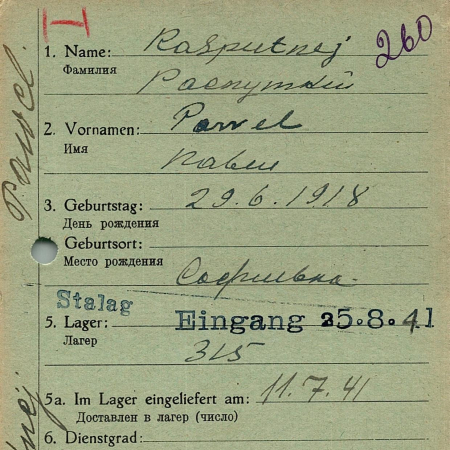 260
1. Name: Rasputnej
Фамилия Распутний
2. Vornamen: Pawel
Имя Павел
3. Geburtstag: 29.6.1918
День рождения
Geburtsort:
Место рождения
Софиевка
Stalag
5. Lager: Eingang 25.8.41
Лагер 315
5a. Im Lager eingeliefert am: 11.7.41
Доставлен в лагер (число)
6. Dienstgrad:
Pawel.